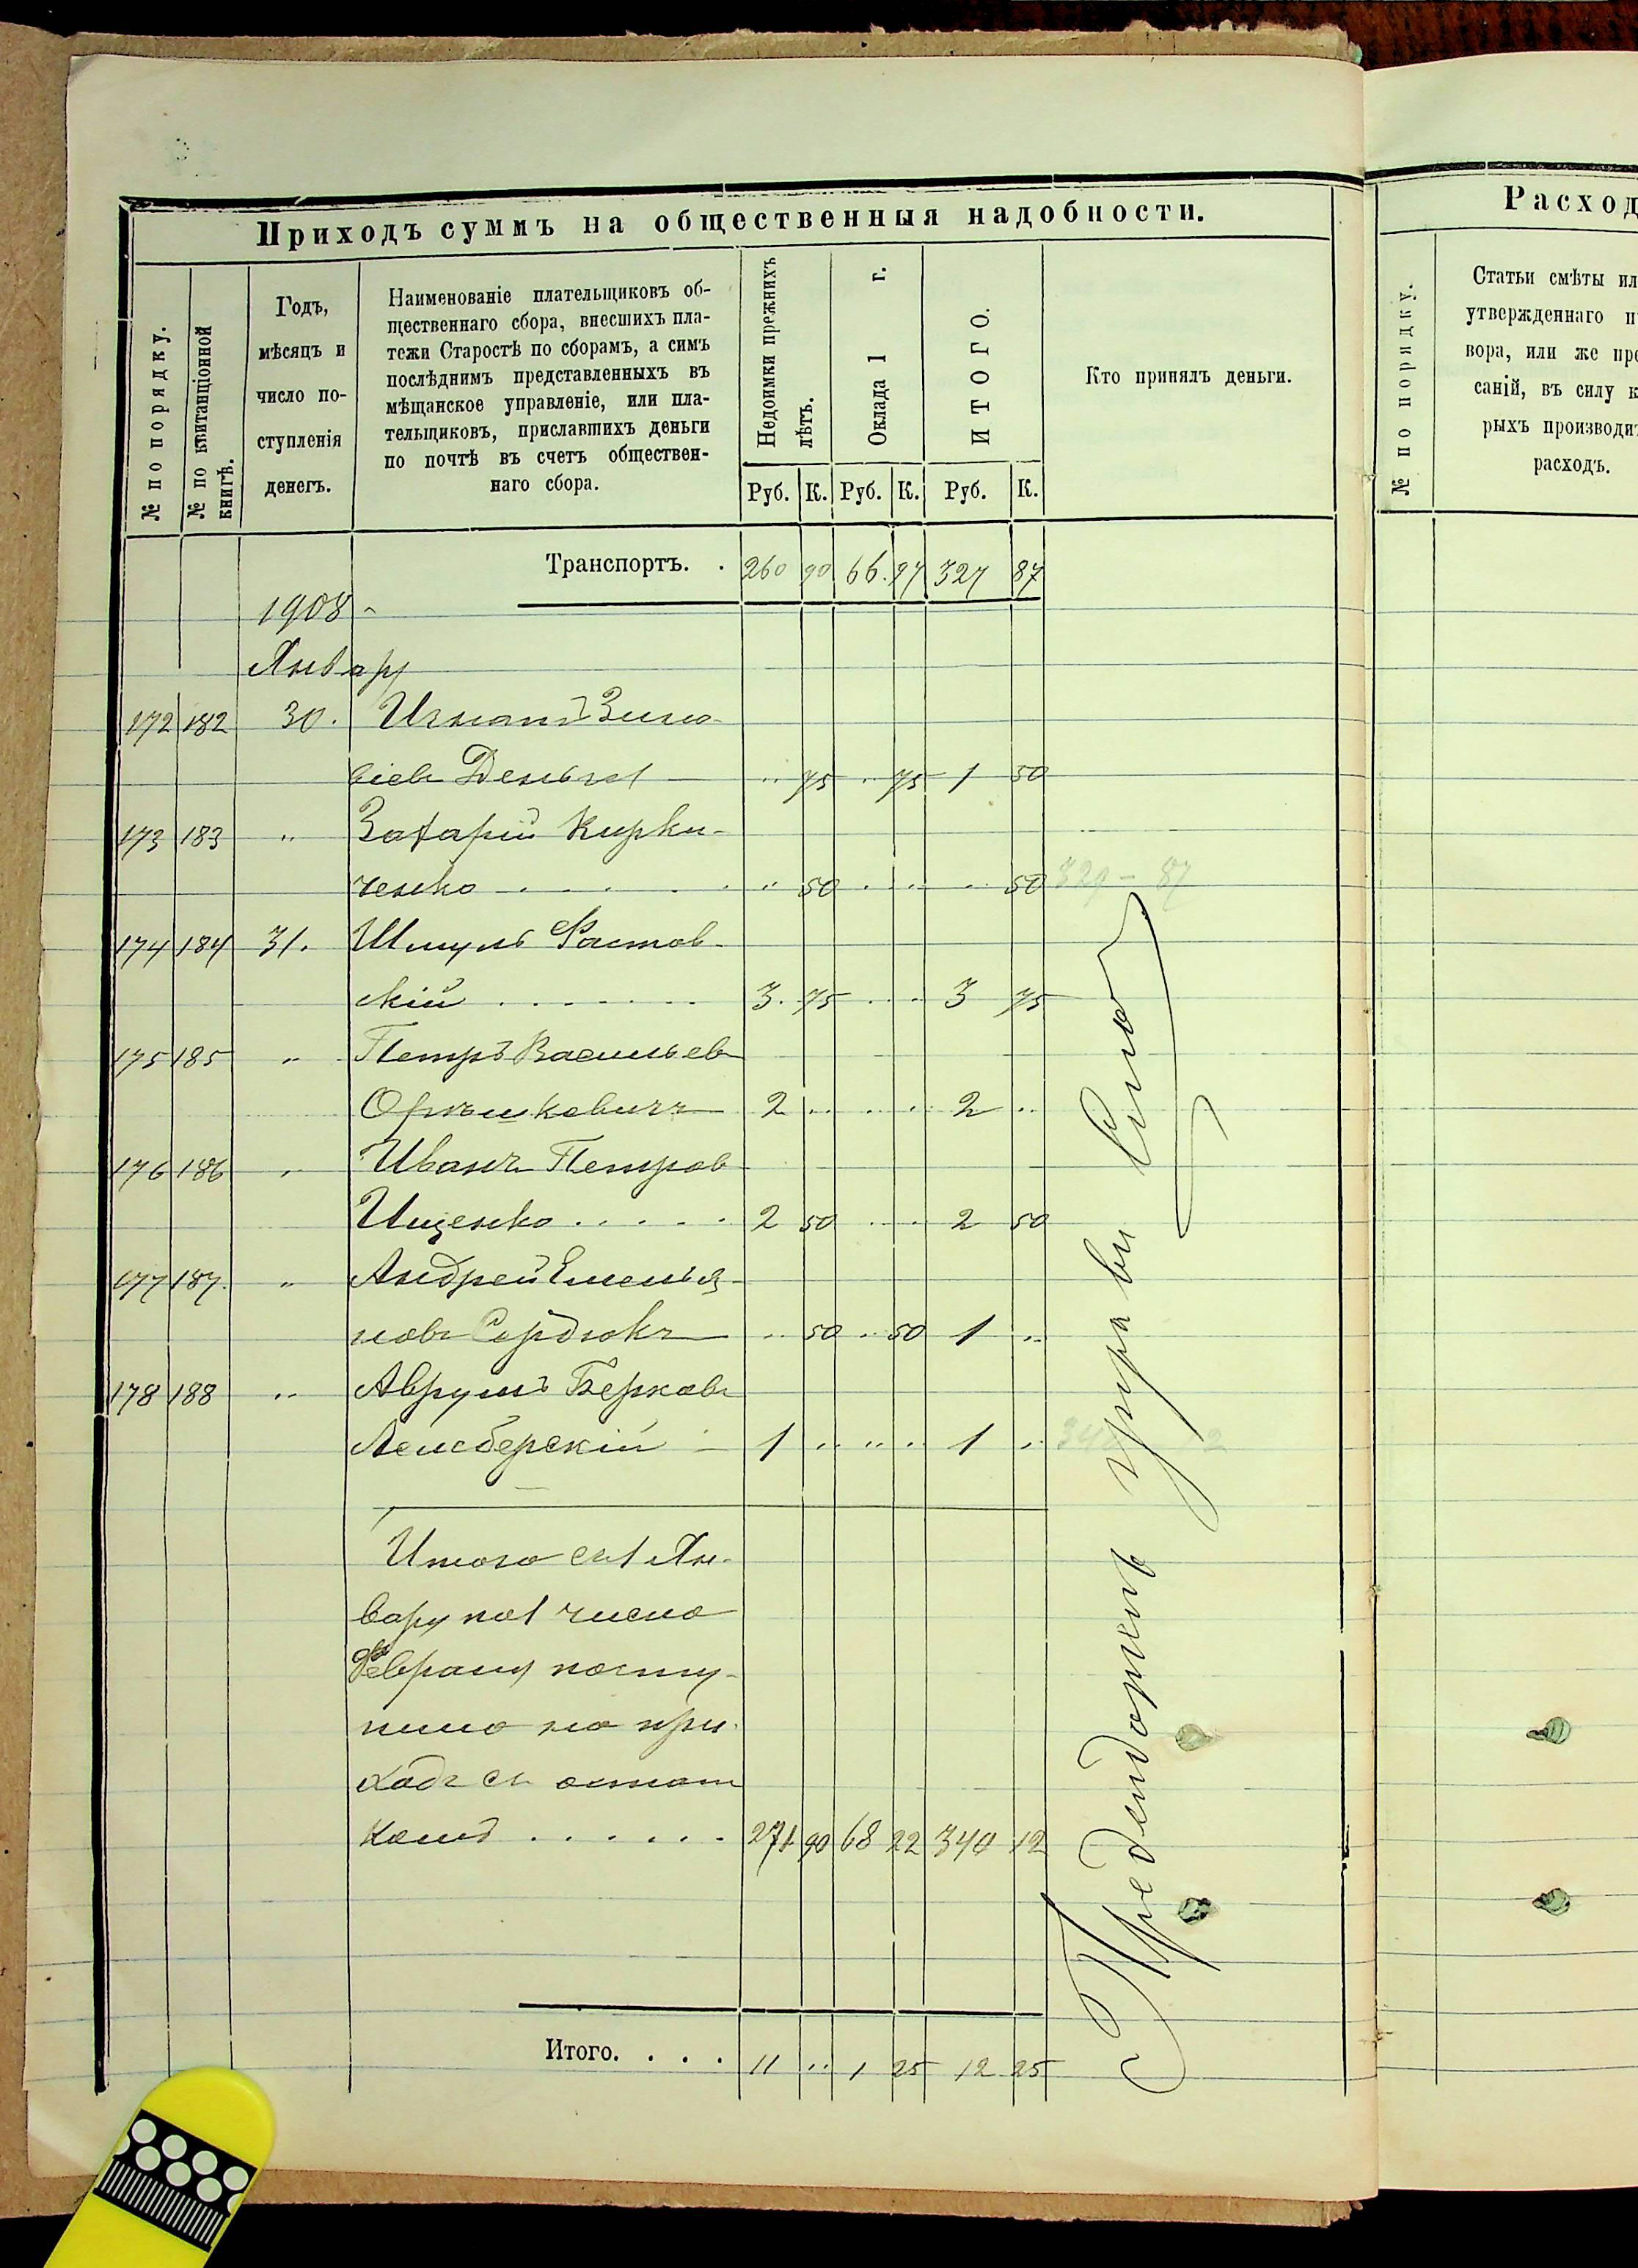 Приходъ суммъ на общественныя надобности.
№ по порядку.
№ по квитанціонной книгѣ.
Годъ,
мѣсяцъ и
число по-
ступленія
денегъ.
Наименованіе плательщиковъ об-
щественнаго сбора, внесшихъ пла-
тежи Старостѣ по сборамъ, а симъ
послѣднимъ представленныхъ въ
мѣщанское управленіе, или пла-
тельщиковъ, приславшихъ деньги
по почтѣ въ счетъ обществен-
наго сбора.
Недоимки прежнихъ
лѣтъ.
Оклада 1 г.
ИТОГО.
Кто принялъ деньги.
Руб. К. Руб. К. Руб. К.
Транспортъ. . 260 90 66. 97 327 87
1908
Январ
172 182 30. Игнатъ Зино-
віевъ .. 75 .. 75 1 50
173 183 .. Захарій Кирки-
ченко .. 50 . .. .. 50 329-87
174 184 31. Шмуль Растов-
скій 3. 75 . .. 3 75
175 185 .. Петръ Васильев
2 .. .. .. 2 ..
176 186 .. Иванъ Петров
Ищенко . . . . . 2 50 .. .. 2 50
177 187. .. Андрей Емелья-
новъ Сердюкъ .. 50 .. 50 1 ..
178 188 .. Аврумъ Берковъ
Лемберскій 1 .. .. .. 1 ..
Итого съ 1 Ян-
вар по 1 число
Февраля посту-
пило на при-
ходъ съ остат
комъ . . . . . . 271 90 68 22 340 12
Итого. . . . 11 .. 1 25 12 25
Расход
№ по порядку.
Статьи смѣты ил
утвержденнаго п
вора, или же пре
саній, въ силу к
рыхъ производит
расходъ.